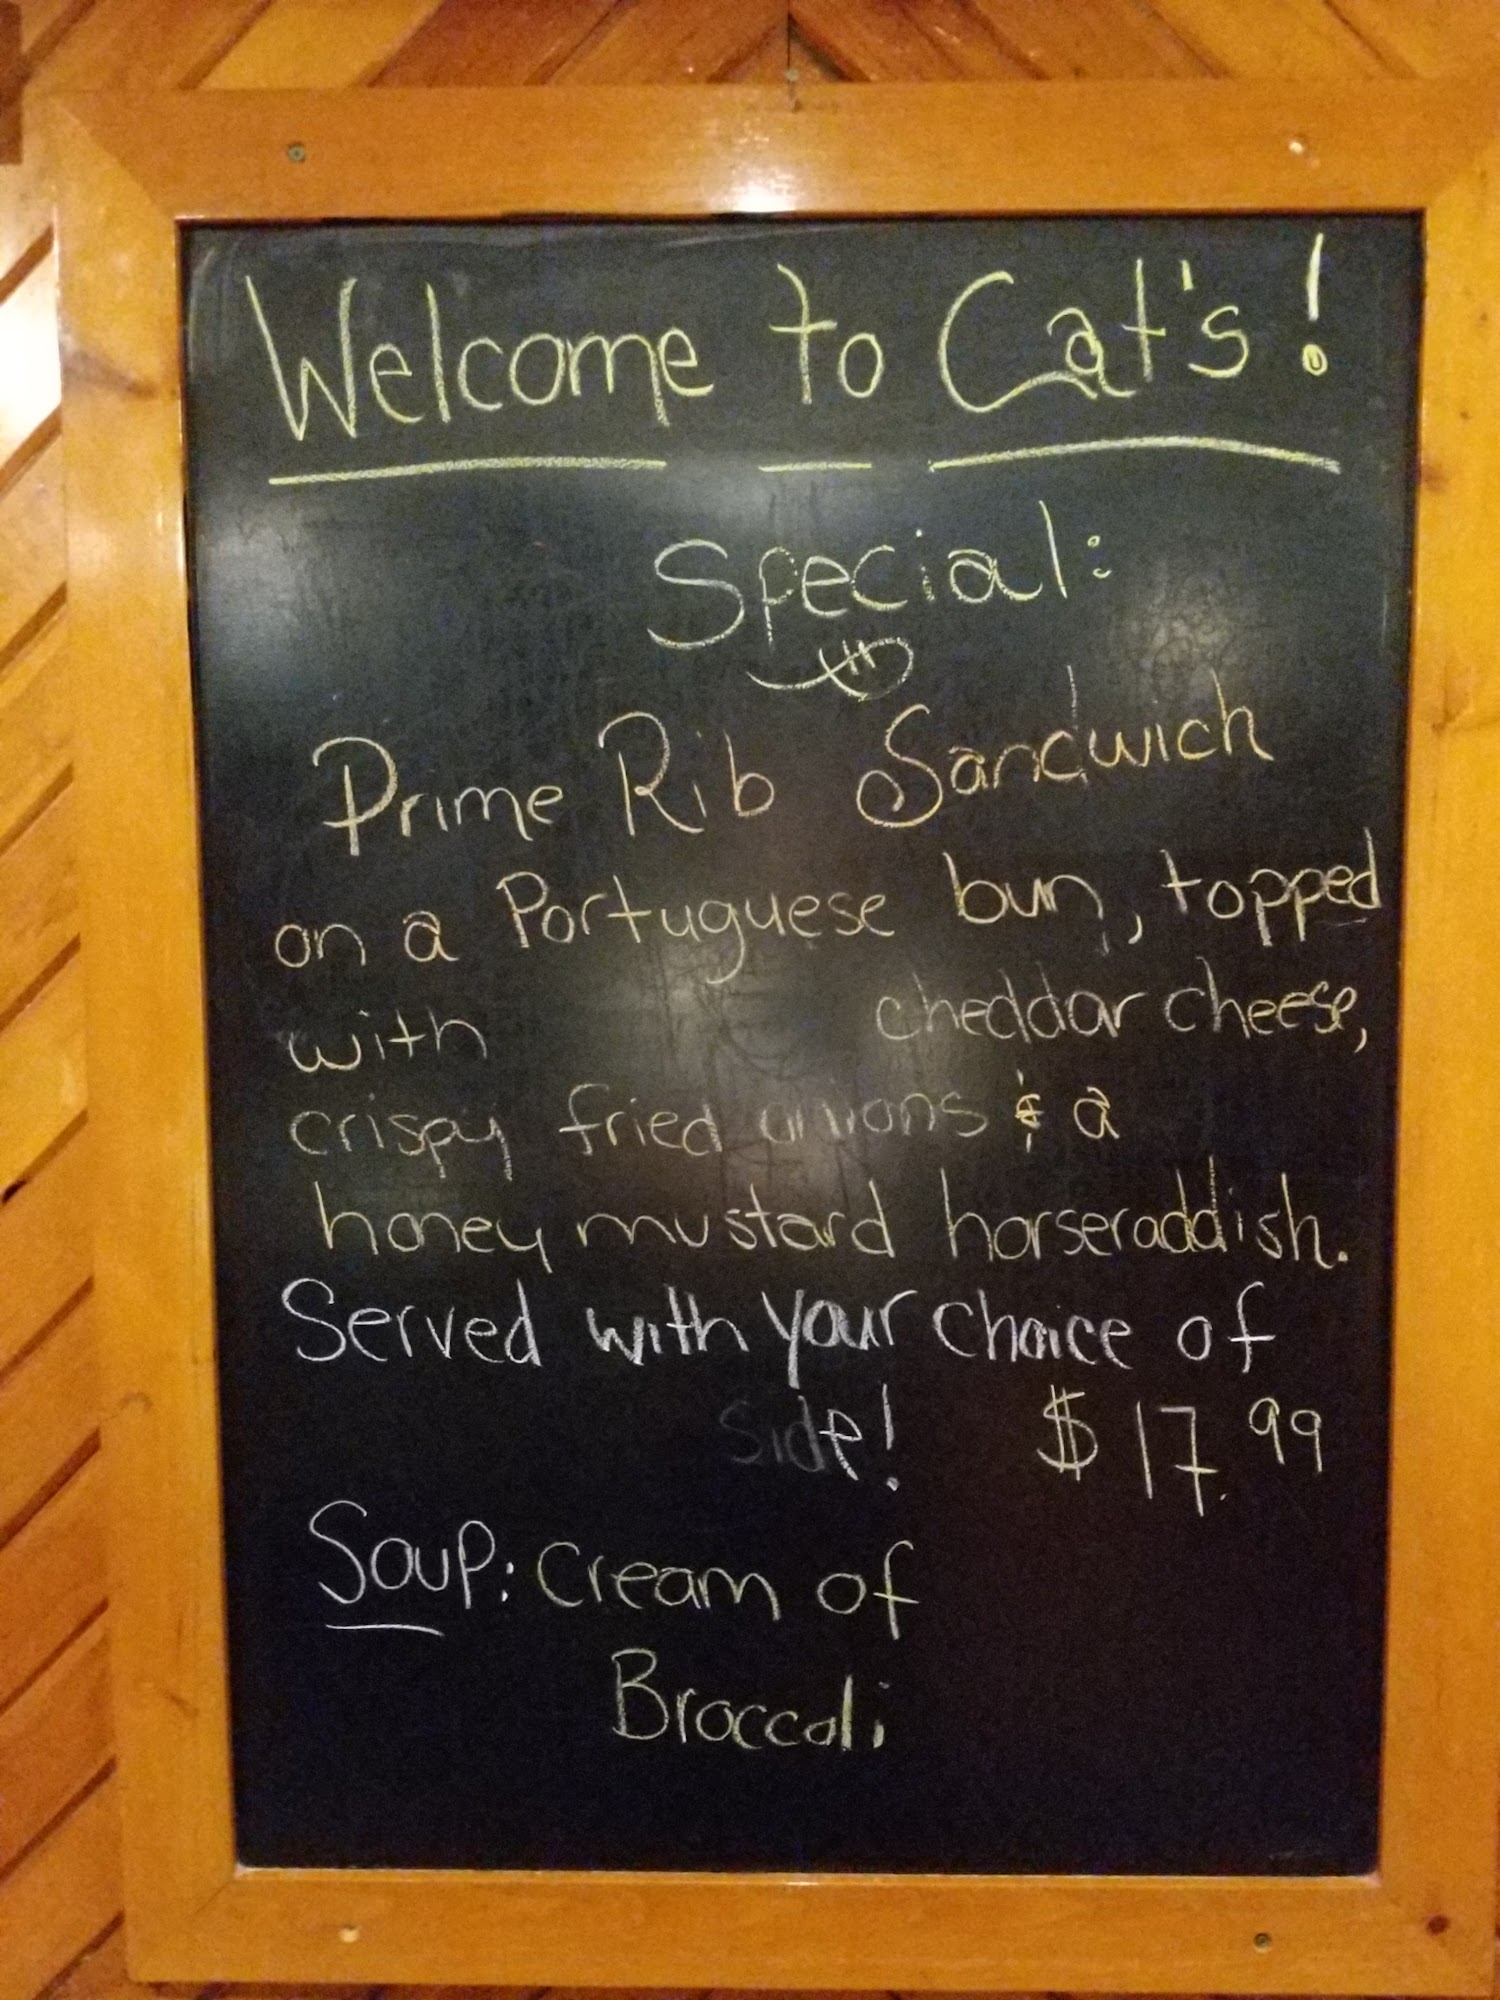 Welcome to Cat's!
Special:
Prime Rib Sandwich
on a Portuguese bun, topped
with cheddar cheese,
crispy fried onions & a
honey mustard horseraddish.
Served with your choice of
side! $17.99
Soup: Cream of
Broccoli